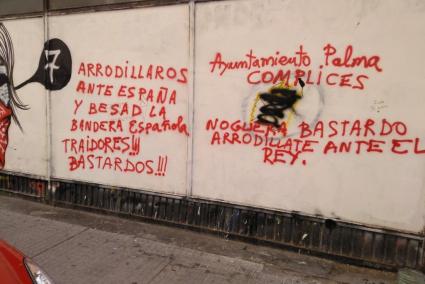 7
ARRODILLAROS
ANTE ESPAÑA
Y BESAD LA
BANDERA Española
TRAIDORES!!!
BASTARDOS!!!
Ayuntamiento Palma
COMPLICES
NOGUERA BASTARDO
ARRODILLATE ANTE EL
REY.